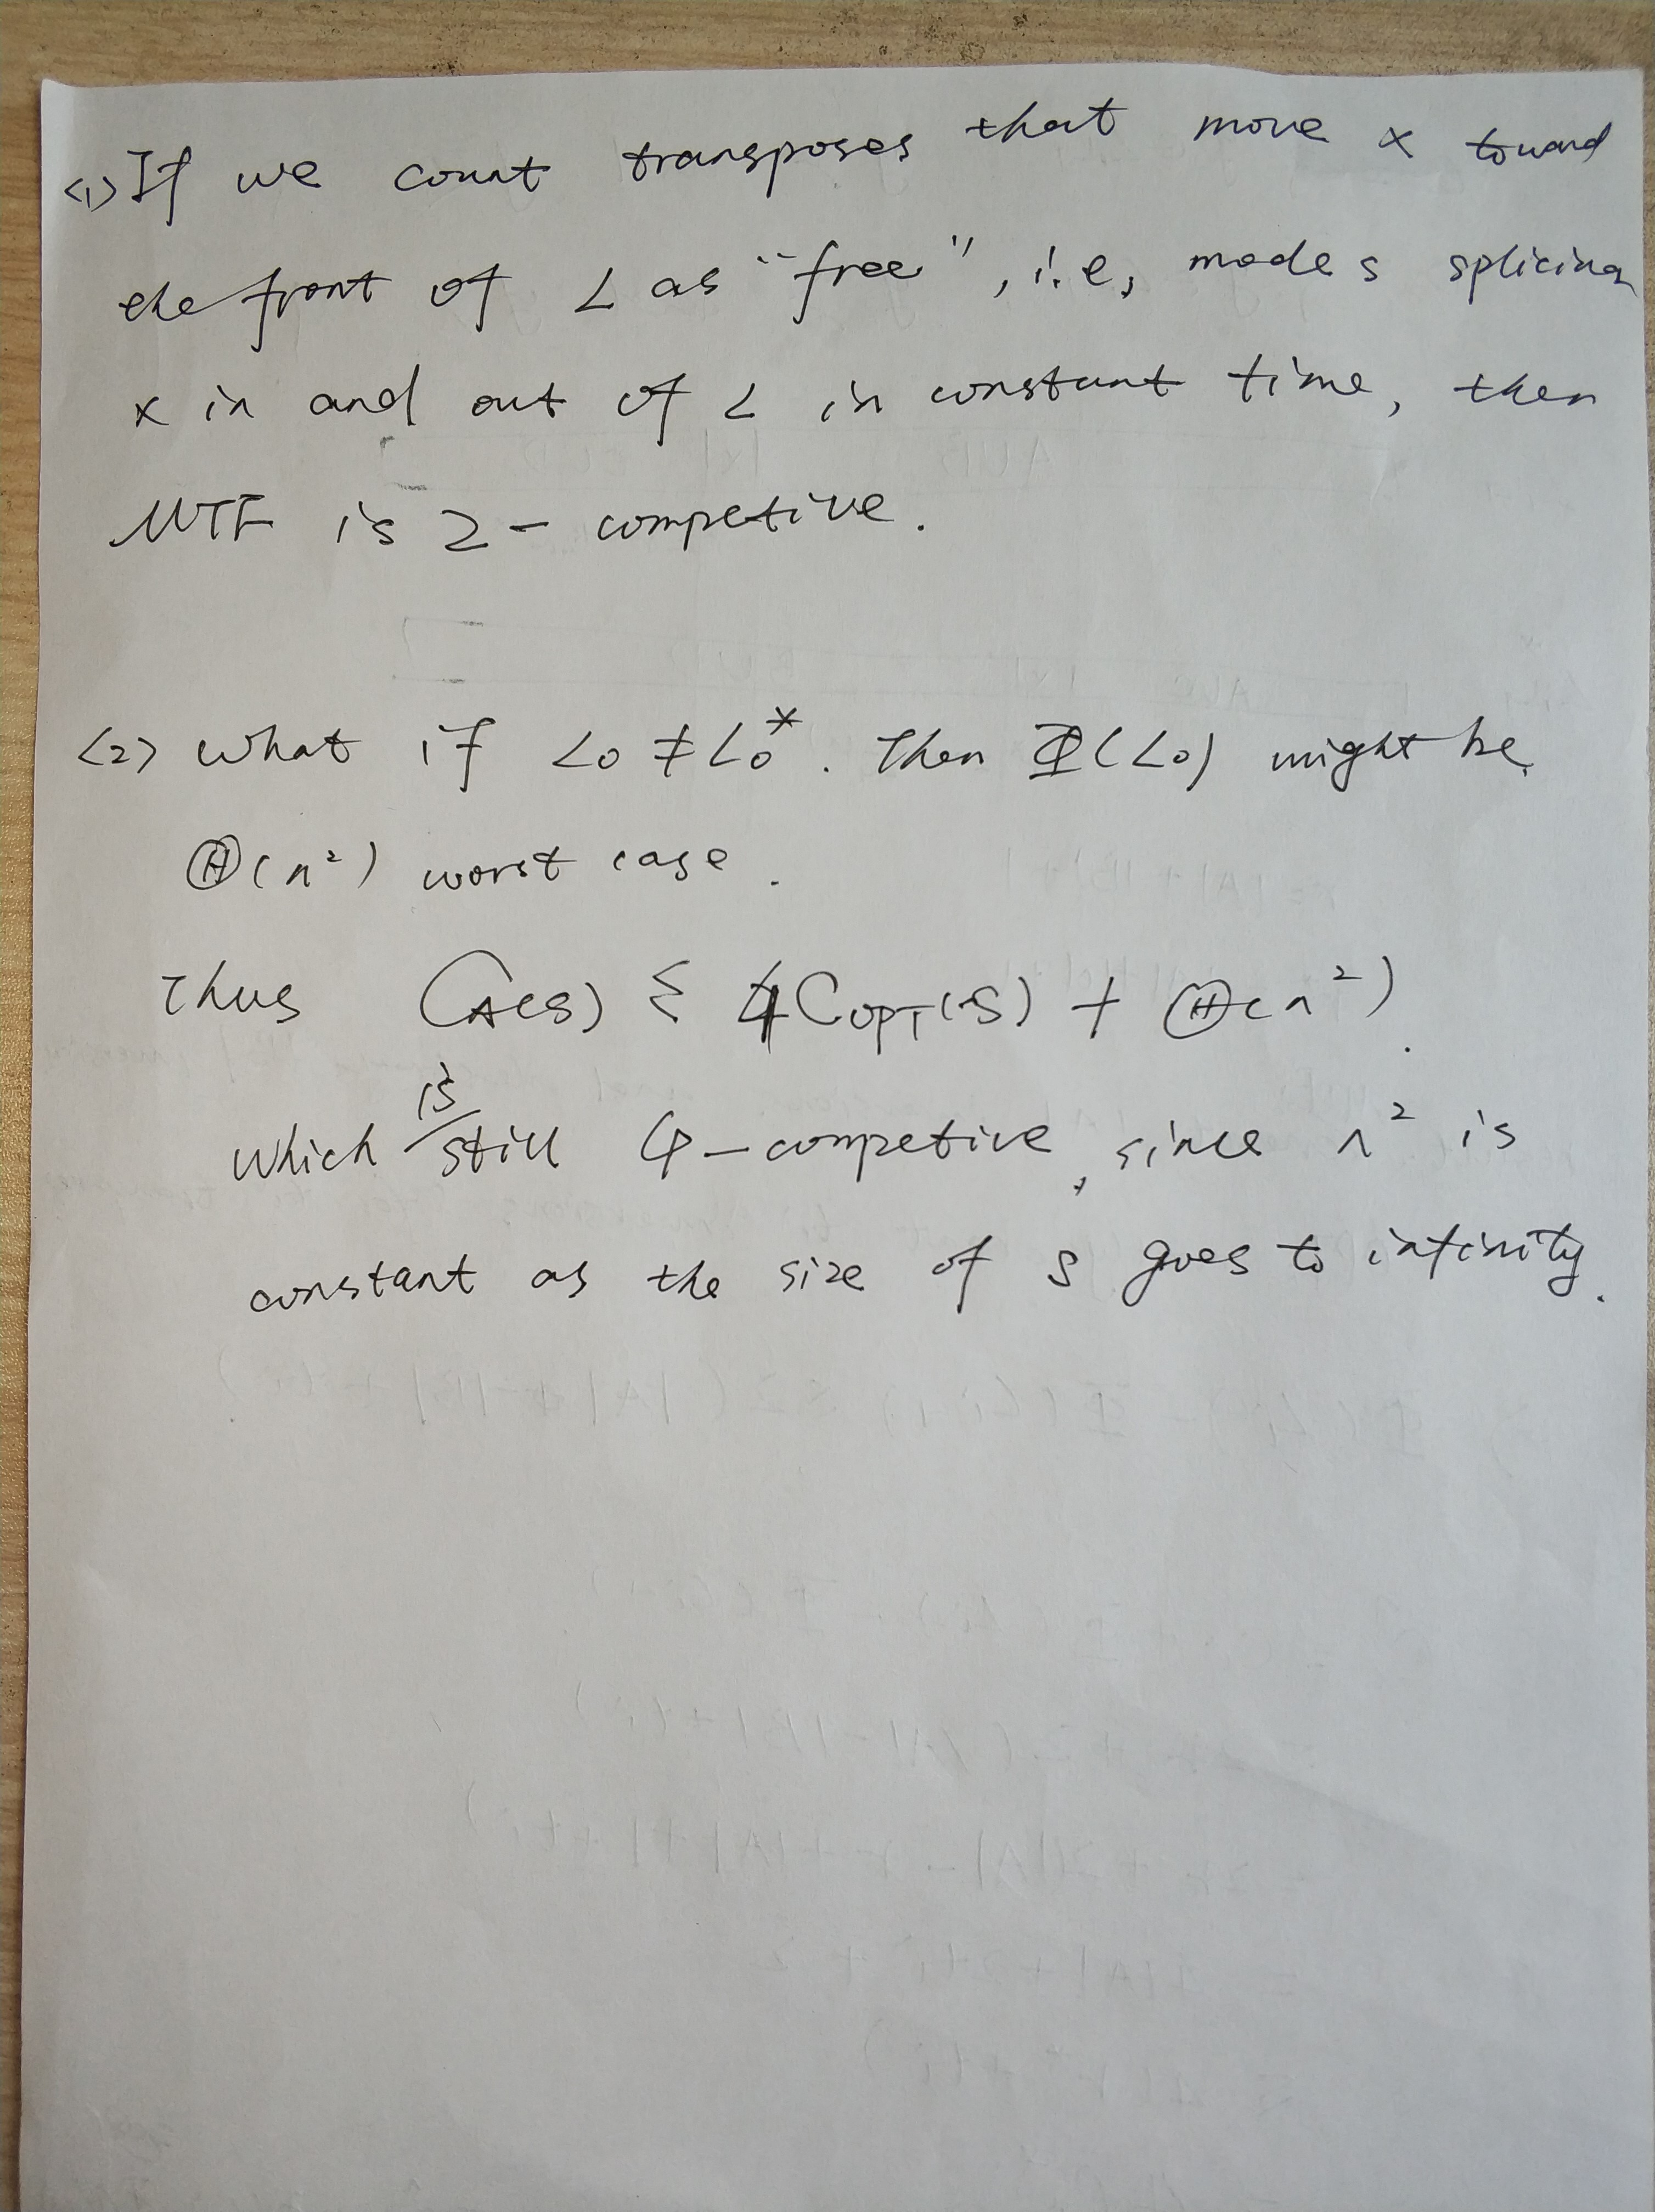 <1> If we count transposes that move x toward
the front of L as "free", i.e, modes splicing
x in and out of L in constant time, then
MTF is 2-competive.
<2> What if L₀ ≠ L₀*. Then Φ(L₀) might be
Θ(n²) worst case.
Thus C_A(S) ≤ 4C_OPT(S) + Θ(n²).
which is still 4-competive, since n² is
constant as the size of S goes to infinity.